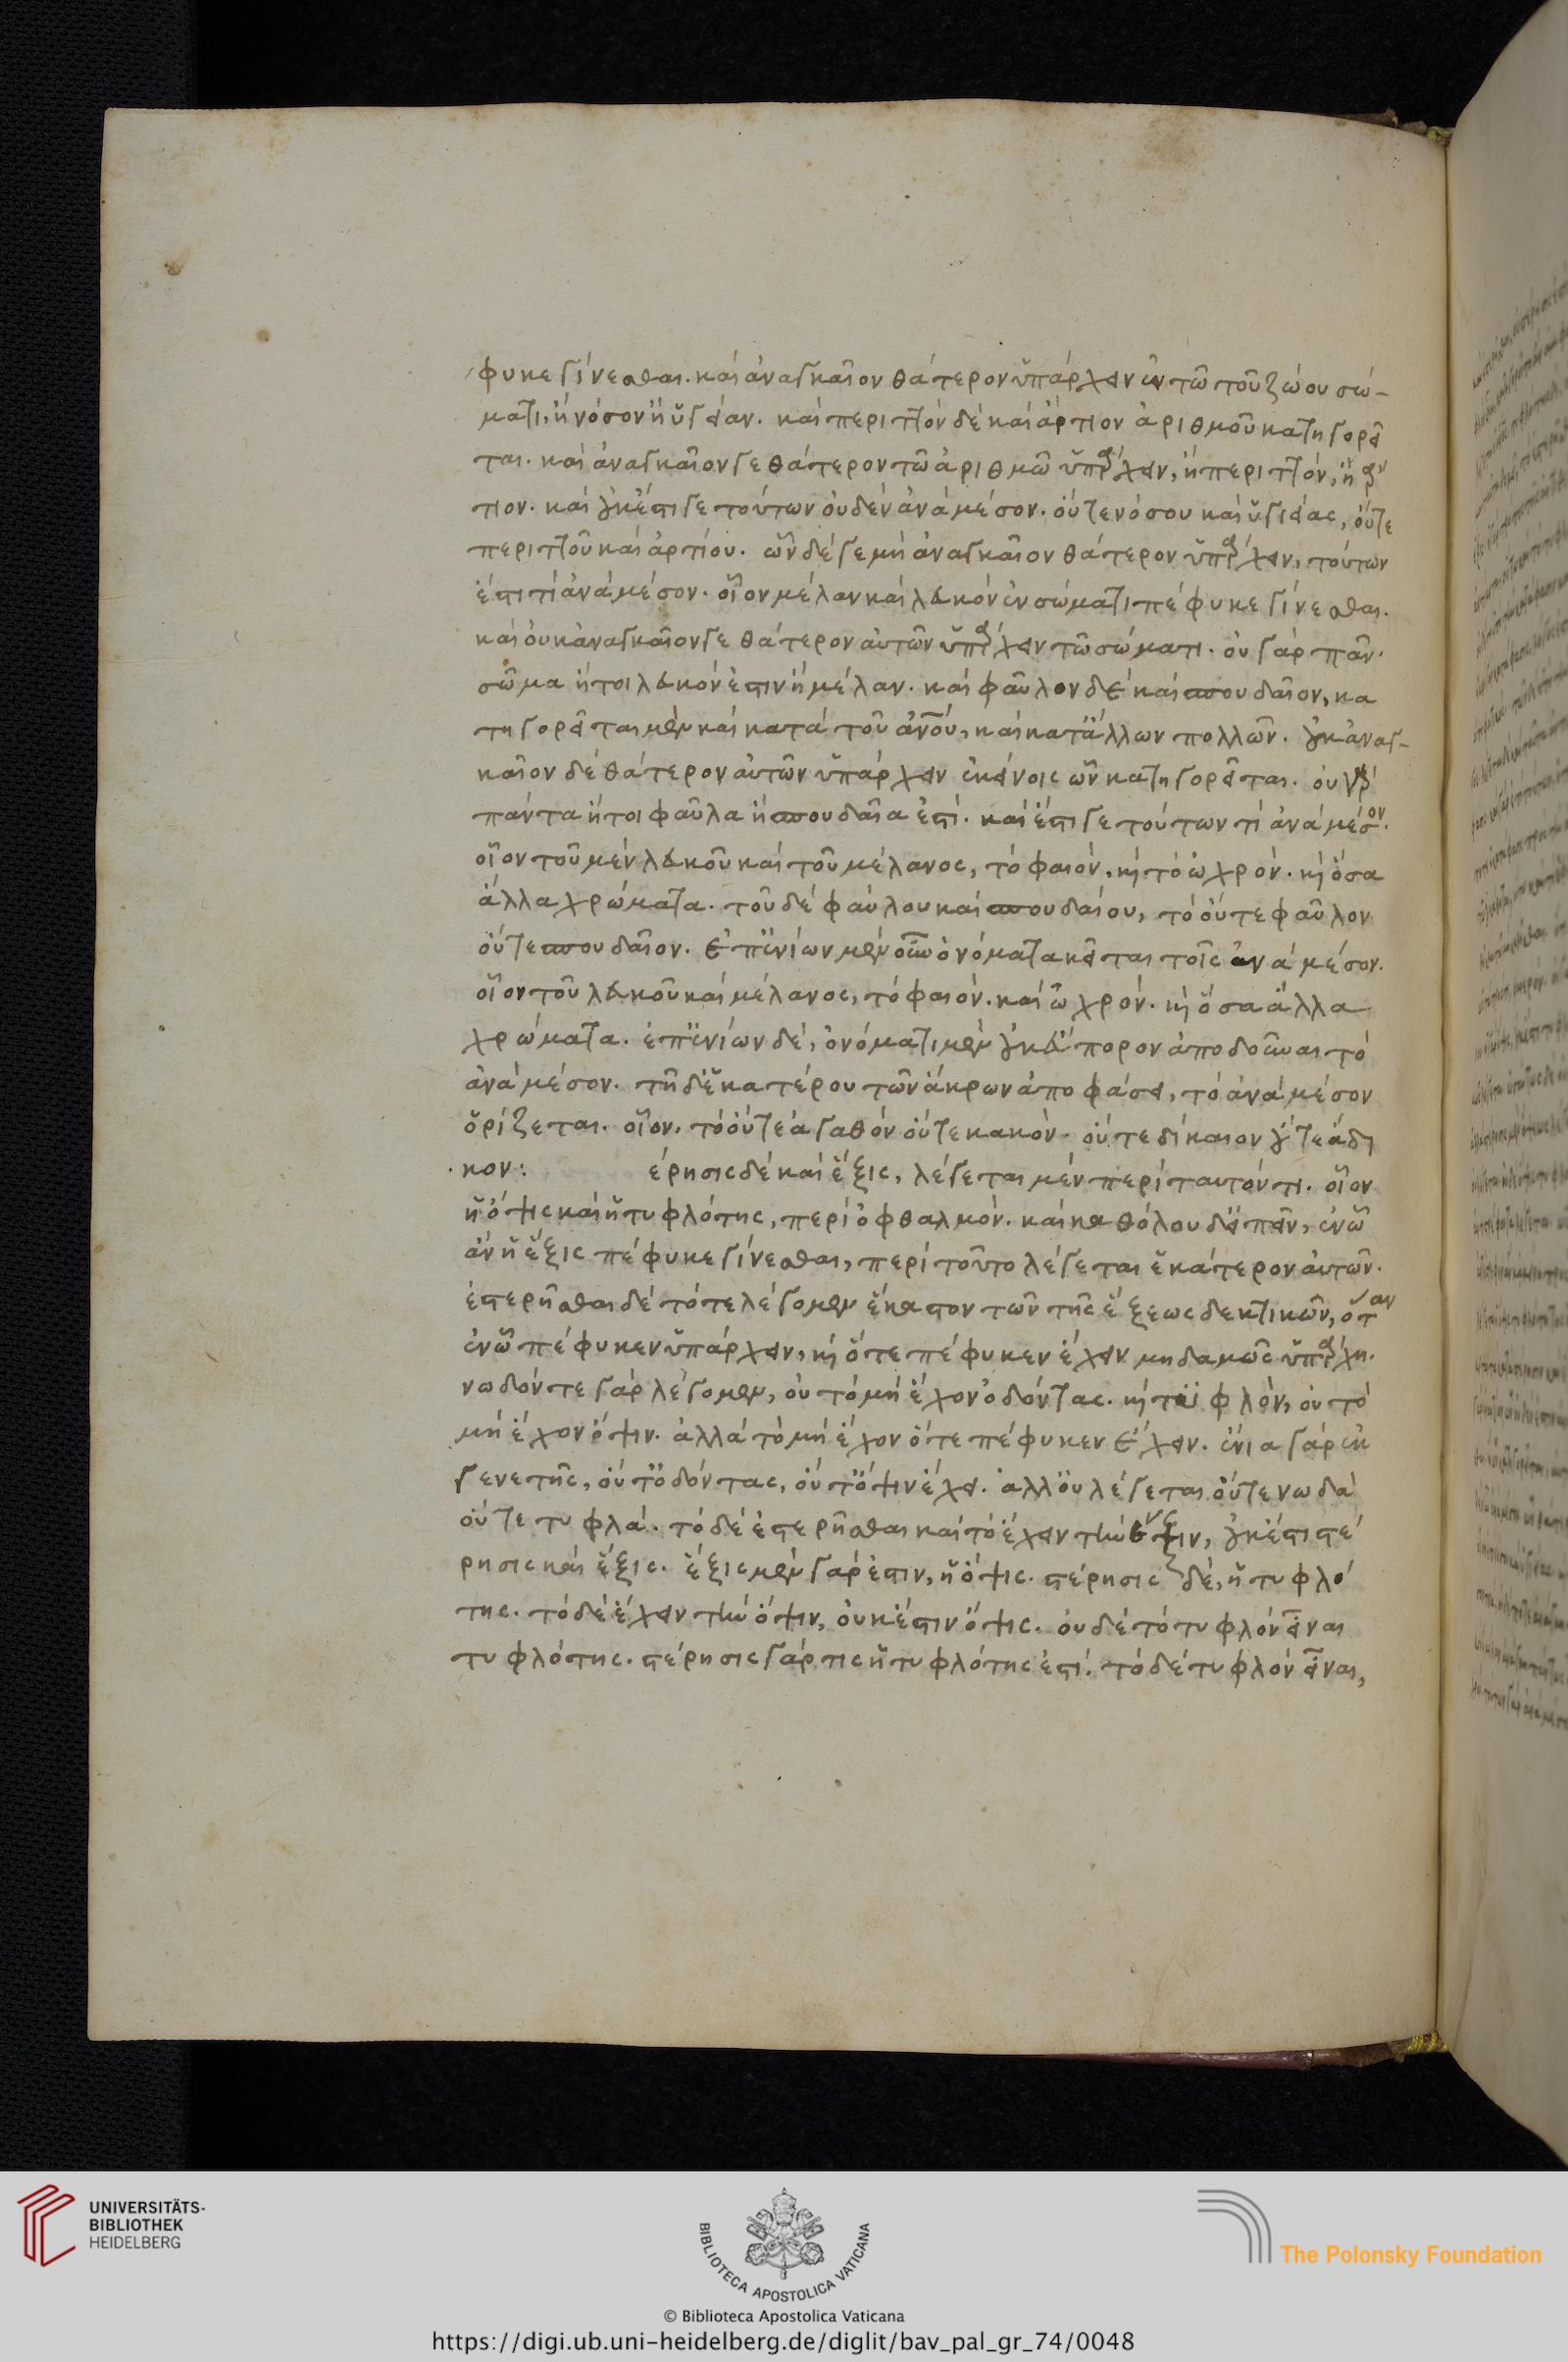 φυκε γίνεσθαι. καὶ ἀναγκαῖον θάτερον ὑπάρχειν ἐν τῶ τοῦ ζώου σώ-
ματι, ἢ νόσον ἢ ὑγείαν. καὶ περιττὸν δὲ καὶ ἄρτιον ἀριθμοῦ κατηγορεῖ
ται. καὶ ἀναγκαῖον γε θάτερον τῶ ἀριθμῶ ὑπάρχειν, ἢ περιττόν, ἢ ἄρ
τιον. καὶ οὐκ ἔστι γε τούτων οὐδὲν ἀνάμέσον. οὔτε νόσου καὶ ὑγιείας, οὔτε
περιττοῦ καὶ ἀρτίου. ὧν δέ γε μὴ ἀναγκαῖον θάτερον ὑπάρχειν, τούτων
ἔστι τὶ ἀνάμέσον. οἷον μέλαν καὶ λευκὸν ἐν σώματι πέφυκε γίνεσθαι.
καὶ οὐκ ἀναγκαῖον γε θάτερον αὐτῶν ὑπάρχειν τῶ σώματι. οὐ γὰρ πᾶν
σῶμα ἤτοι λευκόν ἐστιν ἢ μέλαν. καὶ φαῦλον δὲ καὶ σπουδαῖον, κα
τηγορεῖται μὲν καὶ κατὰ τοῦ ἀνου, καὶ κατ ἄλλων πολλῶν. οὐκ ἀναγ-
καῖον δὲ θάτερον αὐτῶν ὑπάρχειν ἐκείνοις ὧν κατηγορεῖται. οὐ γὰρ
πάντα ἤτοι φαῦλα ἢ σπουδαῖα ἐστί. καὶ ἔστι γε τούτων τὶ ἀνάμέσον.
οἷον τοῦ μὲν λευκοῦ καὶ τοῦ μέλανος, τὸ φαιόν, καὶ τὸ ὠχρόν. καὶ ὅσα
ἄλλα χρώματα. τοῦ δὲ φαύλου καὶ σπουδαίου, τὸ οὔτε φαῦλον
οὔτε σπουδαῖον. ἐπ ἐνίων μὲν οὖν ὀνόματα κεῖται τοῖς ἀνάμέσον.
οἷον τοῦ λευκοῦ καὶ μέλανος, τὸ φαιόν. καὶ ὠχρόν. καὶ ὅσα ἄλλα
χρώματα. ἐπ ἐνίων δέ, ὀνόματι μὲν οὐκ εὔπορον ἀποδοῦναι τὸ
ἀνάμέσον. τῆ δ ἑκατέρου τῶν ἄκρων ἀποφάσει, τὸ ἀνάμέσον
ὁρίζεται. οἷον. τὸ οὔτε ἀγαθὸν οὔτε κακόν. οὔτε δίκαιον οὔτε ἄδι
κον: έρησις δὲ καὶ ἕξις, λέγεται μὲν περὶ ταυτόν τι. οἷον
ἡ ὄψις καὶ ἡ τυφλότης, περὶ ὀφθαλμόν. καὶ καθόλου δ εἰπεῖν, ἐν ὧ
ἂν ἡ ἕξις πέφυκε γίνεσθαι, περὶ τοῦτο λέγεται ἑκάτερον αὐτῶν.
ἐστερῆσθαι δὲ τότε λέγομεν ἕκαστον τῶν τῆς ἕξεως δεκτικῶν, ὅταν
ἐν ὧ πέφυκεν ὑπάρχειν, καὶ ὅτε πέφυκεν ἔχειν μηδαμῶς ὑπάρχη.
νωδόν τε γὰρ λέγομεν, οὐ τὸ μὴ ἔχον ὀδόντας. καὶ τυφλόν, οὐ τὸ
μὴ ἔχον ὄψιν. ἀλλὰ τὸ μὴ ἔχον ὅτε πέφυκεν ἔχειν. ἔνια γὰρ ἐκ
γενετῆς, οὔτ ὀδόντας, οὔτ ὄψιν ἔχει. ἀλλ οὐ λέγεται οὔτε νωδὰ
οὔτε τυφλά. τὸ δὲ ἐστερῆσθαι καὶ τὸ ἔχειν τὴν ὄψιν, οὐκ ἔστι στέ
ρησις καὶ ἕξις. ἕξις μὲν γάρ ἐστιν, ἡ ὄψις. στέρησις δέ, ἡ τυφλό
της. τὸ δὲ ἔχειν τὴν ὄψιν, οὐκ ἔστιν ὄψις. οὐδὲ τὸ τυφλὸν εἶναι
τυφλότης. στέρησις γάρ τις ἡ τυφλότης ἐστί. τὸ δὲ τυφλὸν εἶναι,
UNIVERSITÄTS-
BIBLIOTHEK
HEIDELBERG
BIBLIOTECA APOSTOLICA VATICANA
The Polonsky Foundation
© Biblioteca Apostolica Vaticana
https://digi.ub.uni-heidelberg.de/diglit/bav_pal_gr_74/0048